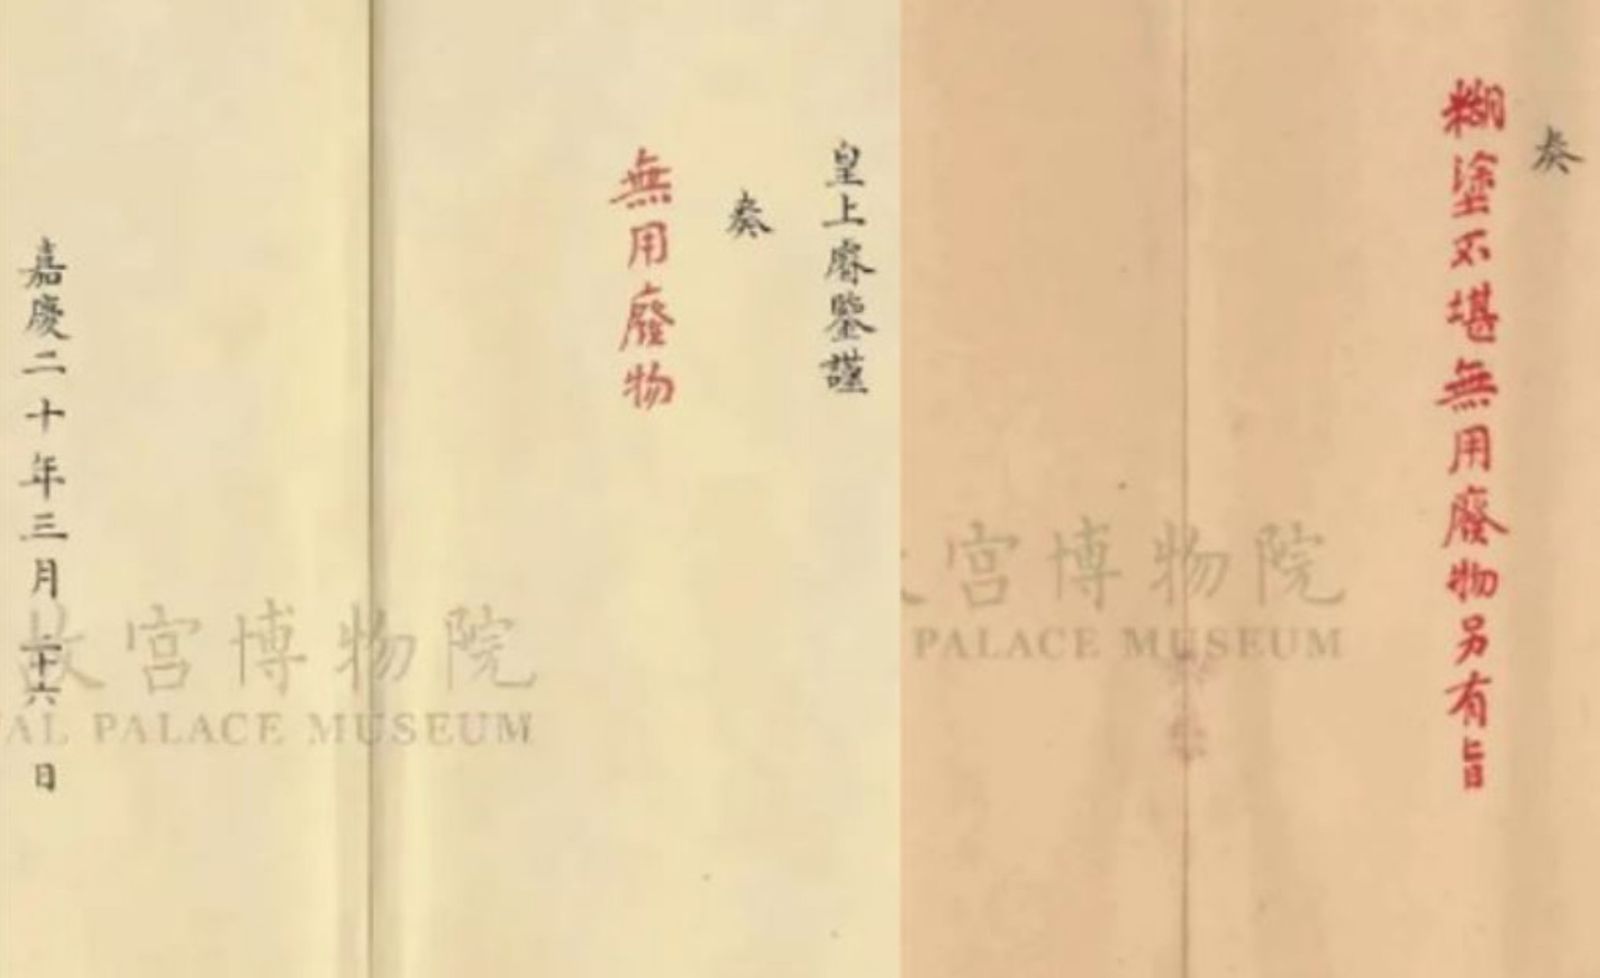 奏
糊塗不堪無用廢物另有旨
宮博物院
PALACE MUSEUM
皇上睿鑒謹
奏
無用廢物
嘉慶二十年三月二十六日
故宮博物院
AL PALACE MUSEUM